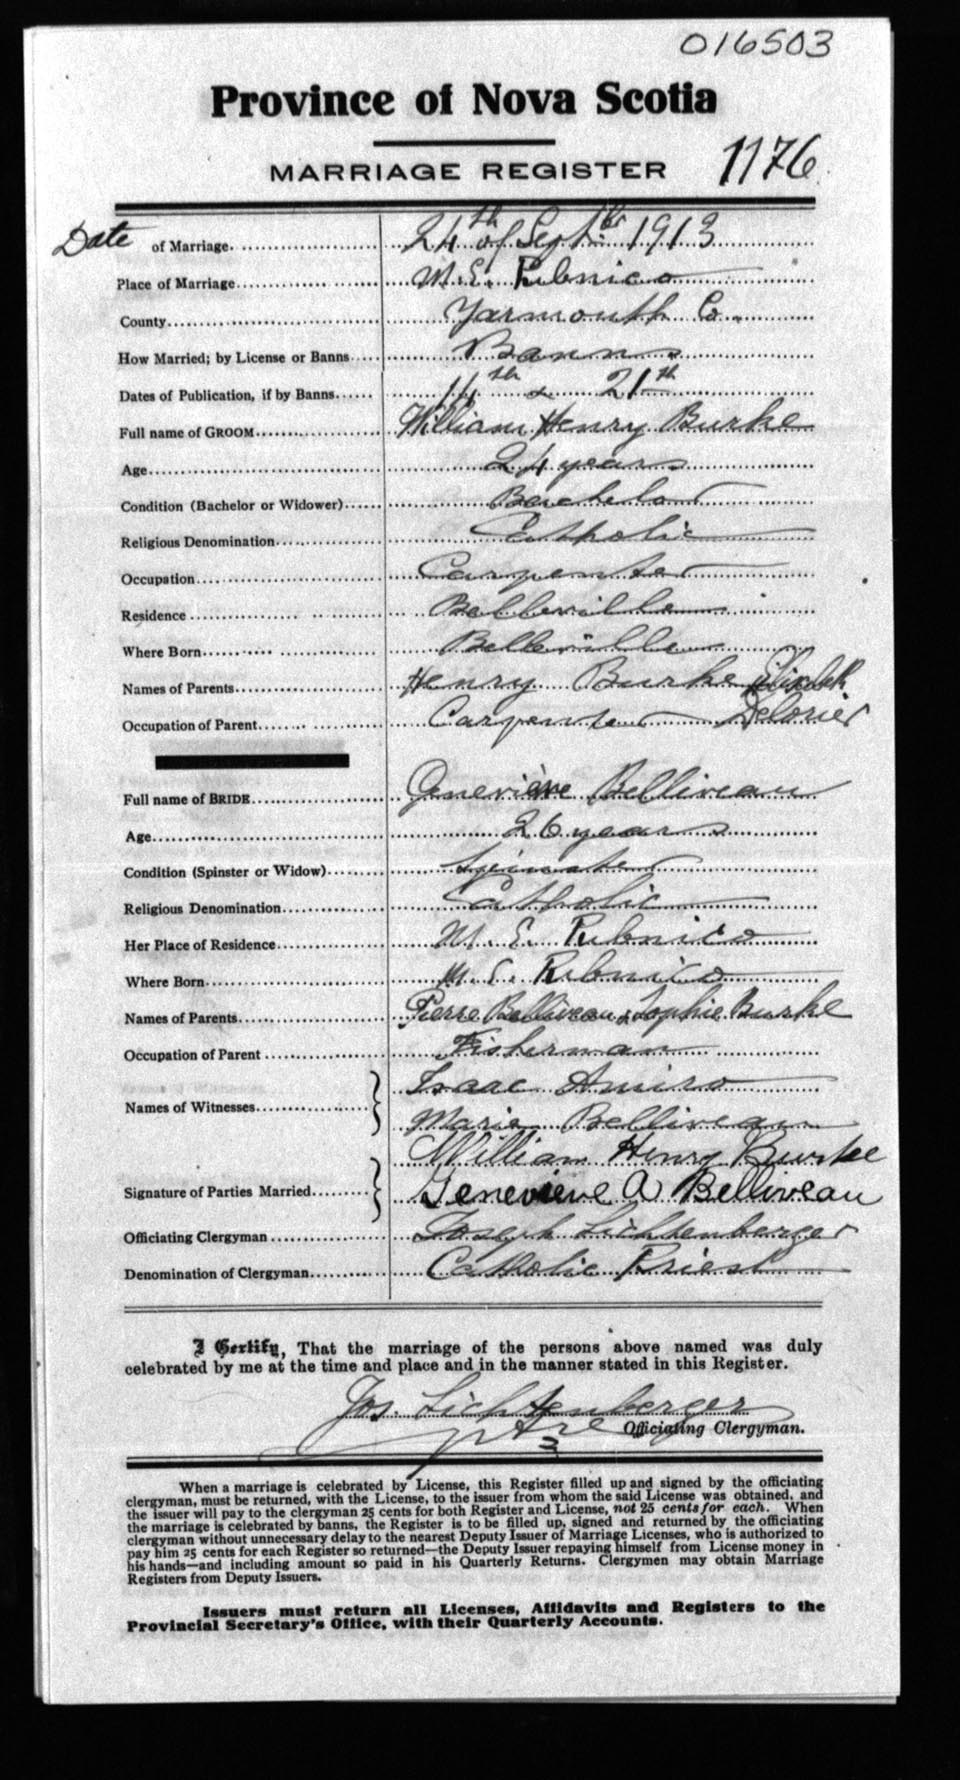 016503
Province of Nova Scotia
MARRIAGE REGISTER 1176
Date of Marriage 24th of Septbr 1913
Place of Marriage M. E. Pubnico
County Yarmouth Co.
How Married; by License or Banns Banns
Dates of Publication, if by Banns 14th & 21th
Full name of GROOM William Henry Burke
Age 24 years
Condition (Bachelor or Widower) Bachelor
Religious Denomination Catholic
Occupation Carpenter
Residence Belleville
Where Born Belleville
Names of Parents Henry Burke Elizabeth
Occupation of Parent Carpenter Delorier
Full name of BRIDE Geneviève Belliveau
Age 26 years
Condition (Spinster or Widow) Spinster
Religious Denomination Catholic
Her Place of Residence M. E. Pubnico
Where Born M. E. Pubnico
Names of Parents Pierre Belliveau & Sophie Burke
Occupation of Parent Fisherman
Names of Witnesses Isaac Amiro
Marie Belliveau
William Henry Burke
Signature of Parties Married Genevieve A Belliveau
Officiating Clergyman Joseph Lichtenberger
Denomination of Clergyman Catholic Priest
I Certify, That the marriage of the persons above named was duly
celebrated by me at the time and place and in the manner stated in this Register.
Jos. Lichtenberger
ptre Officiating Clergyman.
When a marriage is celebrated by License, this Register filled up and signed by the officiating
clergyman, must be returned, with the License, to the issuer from whom the said License was obtained, and
the issuer will pay to the clergyman 25 cents for both Register and License, not 25 cents for each. When
the marriage is celebrated by banns, the Register is to be filled up, signed and returned by the officiating
clergyman without unnecessary delay to the nearest Deputy Issuer of Marriage Licenses, who is authorized to
pay him 25 cents for each Register so returned—the Deputy Issuer repaying himself from License money in
his hands—and including amount so paid in his Quarterly Returns. Clergymen may obtain Marriage
Registers from Deputy Issuers.
Issuers must return all Licenses, Affidavits and Registers to the
Provincial Secretary's Office, with their Quarterly Accounts.